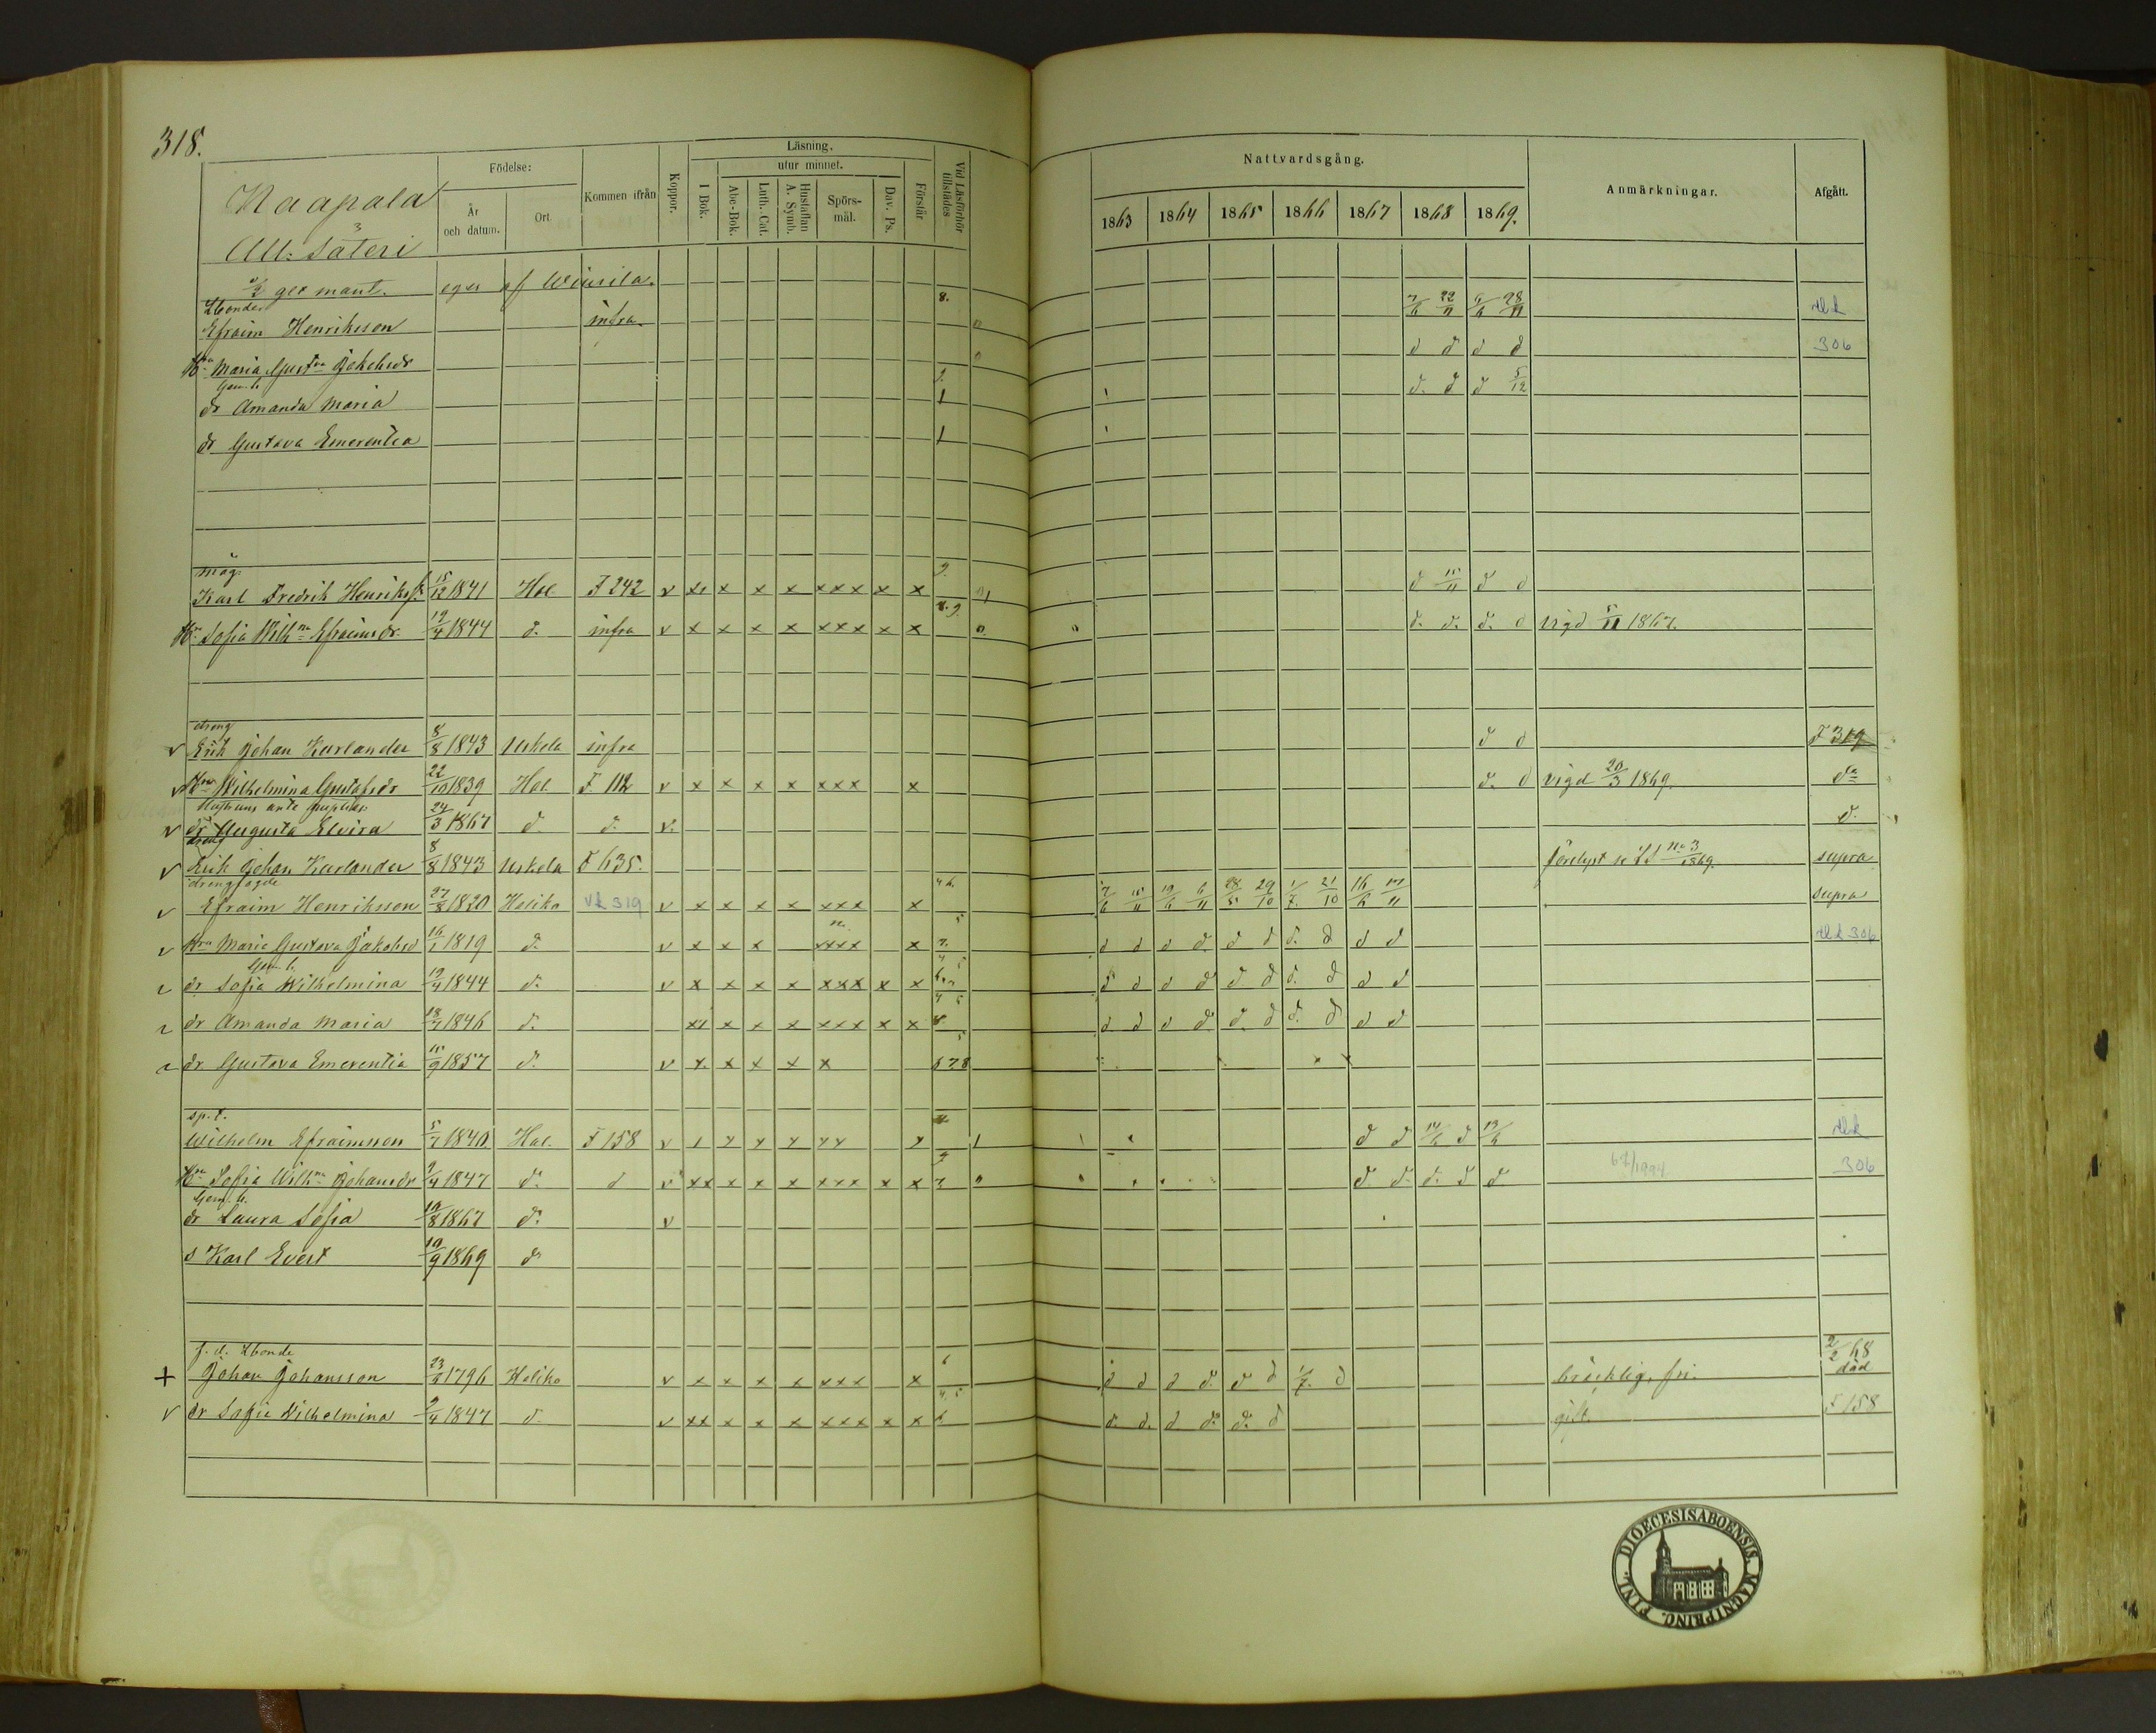 318.
Födelse: Kommen ifrån Koppor. Läsning. Vid Läsförhör tillstädes
Nattvardsgång. Anmärkningar. Afgått.
År och datum. Ort. I Bok. utur minnet. Abc-Bok. Luth. Cat. Hustaflan A. Symb. Spörs-mål. Dav. Ps. Förstår
1863 1864 1865 1866 1867 1868 1869.
Naapala
All: Säteri
ger mant. eger af Wiurila.
Lbonde
Efraim Henriksson infra 8. 7/6 22/11 6/6 28/11
Hu Maria Gustva Jakobsdr d d d d 306
Gem. b.
dr Amanda Maria 1 d. d d 5/12
dr Gustava Emerentia 1
måg.
Karl Fredrik Henrikss. 15/12 1841 Hal. F 242 v xx x x x xxx x x 9. d 15/11 d d
Hu Sofia Wilhna Efraimsdr 19/4 1844 d. infra v x x x x xxx x x 8.9. d. d. d. d vigd 5/11 1867.
dreng
v Erik Johan Karlander 8/8 1843 Uskela infra d d F 319
v Hu Wilhelmina Gustafsdr 22/10 1839 Hal. F. 112 v x x x x xxx x d. d vigd 20/3 1869. da
v dr Augusta Elvira 24/3 1867 d. d. v. d.
dreng
v Erik Johan Karlander 8/8 1843 Uskela F 635. förlyst se No 3 1869. supra
drengfogde
v Efraim Henriksson 27/8 1820 Haliko Vk 319 v x x x x xxx x 7/6 15/11 19/6 6/11 28/5 29/10 1/7. 21/10 16/6 17/11 supra
v Hru Maria Gustava Jakobsd 16/1 1819 d. v x x x xxxx x 7. d d d d. d d d. d d d 306
Gem. b.
dr Sofia Wilhelmina 19/4 1844 d. v x x x x xxx x x d d d d d d d. d d d
dr Amanda Maria 18/7 1846 d. xx x x x xxx x x 8. d d d d. d. d d. d d d
dr Gustava Emerentia 15/9 1857 d. v x. x x x x 6 7.8
sp. t.
Wilhelm Efraimsson 5/7 1840 Hal. F 158 v x x x x xx x 1 d d 14/6 d 13/6
Hu Sofia Wilhna Johansdr 9/4 1847 d. d v xx x x x xxx x x 7 d. d. d. d d 67/1994 306
Gem. b.
dr Laura Sofia 10/8 1867 d. v
s Karl Evert 10/9 1869 d.
f. d. Lbonde
+ Johan Johansson 23/6 1796 Haliko v x x x x xxx x 6 d d d d. d d 1/7. d bräcklig, fri. 2/2 68 död
v dr Sofia Wilhelmina 9/4 1847 d. v xx x x x xxx x x d. d. d d. d. d gift. F 158
DIOECESIS ABOENSIS. MAGNI PRINC. FINL.